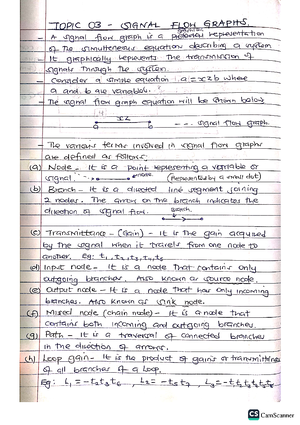 TOPIC 03 - SIGNAL FLOW GRAPHS.
- A signal flow graph is a pictorial representation
of the simultaneous equations describing a system
- It graphically represents the transmission of
signals through the system.
- Consider a simple equation : a = xzb where
a and b are variables
- The signal flow graph equation will be shown below
xz
a b
--- signal flow graph
- The various terms involved in signal flow graphs
are defined as follows;
(a) Node - It is a point representing a variable or
signal. node
(Represented by a small dot)
(b) Branch - It is a directed line segment joining
2 nodes. The arrow on the branch indicates the
direction of signal flow. Branch
(c) Transmittance - (Gain) - It is the gain acquired
by the signal when it travels from one node to
another. eg: t₁, t₂, t₃, t₄, t₅
(d) Input node - It is a node that contains only
outgoing branches. Also known as source node.
(e) Output node - It is a node that has only incoming
branches. Also known as sink node.
(f) Mixed node (chain node) - It is a node that
contains both incoming and outgoing branches.
(g) Path - It is a traversal of connected branches
in the direction of arrows.
(h) Loop gain - It is the product of gains or transmittances
of all branches of a loop.
Eg: L₁ = -t₂t₃t₆ , L₂ = -t₅t₇ , L₃ =
CS CamScanner